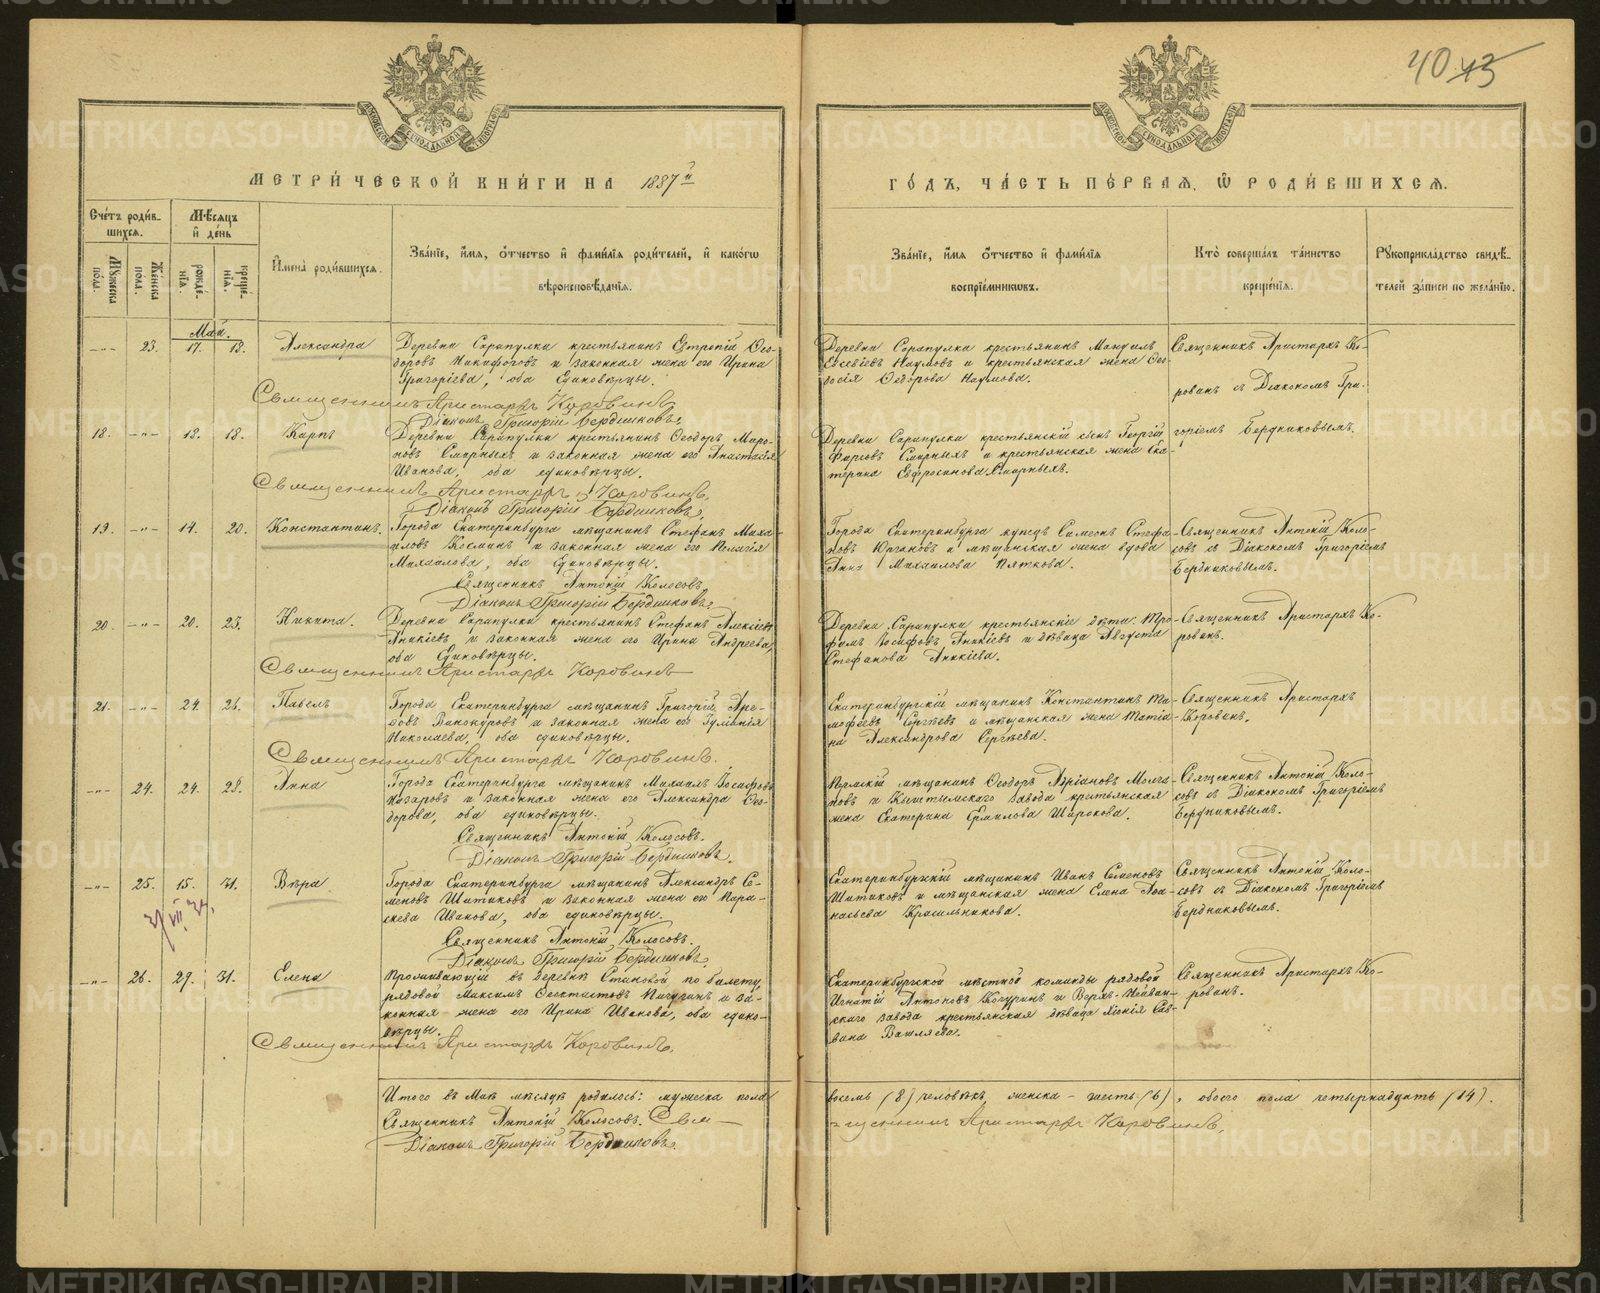 40 43
МЕТРИ́ЧЕСКОЙ КНИ́ГИ НА 1887й
ГО́ДЪ, ЧА́СТЬ ПЕ́РВАЯ, Ѡ РОДИ́ВШИХСЯ.
Сче́тъ роди́в-
шихся.
Мѣ́сяцъ
и҆ де́нь
Му́жеска
по́ла.
Же́нска
по́ла.
рожде́-
нїѧ.
креще́-
нїѧ.
И҆мена̀ роди́вшихся.
Зва́нїе, и҆́мя, ѻ҆́тчество и҆ фами́лїя роди́телей, и҆ како́гѡ
вѣроисповѣ́данїя.
Зва́нїе, и҆́мя ѻ҆́тчество и҆ фами́лїя
воспрїе́мникѡвъ.
Кто̀ соверша́лъ та́инство
креще́нїя.
Рꙋкоприкла́дство свидѣ́-
телей за́писи по жела́нїю.
Май.
-"- 23. 17. 18. Александра
Деревни Сарапулки крестьянинъ Евтропій Ѳео-
доровъ Никифоровъ и законная жена его Ирина
Григоріева, оба Единовѣрцы.
Священникъ Аристархъ Коровинъ
Діаконъ Григорій Бердниковъ.
Деревни Сарапулки крестьянинъ Мануилъ
Евсевіевъ Наумовъ и крестьянская жена Ѳео-
досія Ѳедорова Наумова.
Священникъ Аристархъ Ко-
ровинъ съ Діакономъ Гри-
горіемъ Бердниковымъ.
18. -"- 18. 18. Карпъ
Деревни Сарапулки крестьянинъ Ѳеодоръ Маро-
новъ Смирныхъ и законная жена его Анастасія
Иванова, оба единовѣрцы.
Священникъ Аристархъ Коровинъ.
Діаконъ Григорій Бердниковъ.
Деревни Сарапулки крестьянскій сынъ Георгій
Фирсовъ Смирныхъ и крестьянская жена Ека-
терина Евфросинова Смирныхъ.
19. -"- 14. 20. Константинъ.
Города Екатеринбурга мѣщанинъ Стефанъ Миха-
иловъ Косминъ и законная жена его Пелагія
Михаилова, оба единовѣрцы.
Священникъ Антоній Колосовъ
Діаконъ Григорій Бердниковъ.
Города Екатеринбурга купецъ Симеонъ Стефа-
новъ и мѣщанская жена вдова
Анна Михаилова Пяткова.
Священникъ Антоній Коло-
совъ съ Діакономъ Григоріемъ
Бердниковымъ.
20. -"- 20. 23. Никита.
Деревни Сарапулки крестьянинъ Стефанъ Алексіевъ
Аникіевъ и законная жена его Ирина Андреева,
оба Единовѣрцы.
Священникъ Аристархъ Коровинъ
Деревни Сарапулки крестьянскіе дѣти: Тро-
фимъ Іосифовъ Аникіевъ и дѣвица Августа
Стефанова Аникіева.
Священникъ Аристархъ Ко-
ровинъ.
21. -"- 24 26. Павелъ
Города Екатеринбурга мѣщанинъ Григорій Аре-
Винокуровъ и законная жена его Іуліанія
Николаева, оба единовѣрцы.
Священникъ Аристархъ Коровинъ.
Екатеринбургскій мѣщанинъ Константинъ Ти-
мофеевъ Сергѣевъ и мѣщанская жена Татіа-
на Александрова Сергѣева.
Священникъ Аристархъ
Коровинъ.
-"- 24. 24. 28. Анна
Города Екатеринбурга мѣщанинъ Михаилъ Іосифовъ
Назаровъ и законная жена его Александра Ѳео-
дорова, оба единовѣрцы.
Священникъ Антоній Колосовъ.
Діаконъ Григорій Бердниковъ.
Пермскій мѣщанинъ Ѳеодоръ Адріановъ Молча-
новъ и Кыштымскаго завода крестьянская
жена Екатерина Ермилова Широкова.
Священникъ Антоній Коло-
совъ съ Діакономъ Григоріемъ
Бердниковымъ.
-"- 25. 15. 31. Вѣра
Города Екатеринбурга мѣщанинъ Александръ Се-
меновъ Шитиковъ и законная жена его Пара-
скева Иванова, оба единовѣрцы.
Священникъ Антоній Колосовъ.
Діаконъ Григорій Бердниковъ.
Екатеринбургскій мѣщанинъ Иванъ Семеновъ
Шитиковъ и мѣщанская жена Елена Аѳа-
насьева Красильникова.
Священникъ Антоній Коло-
совъ съ Діакономъ Григоріемъ
Бердниковымъ.
-"- 26. 29. 31. Елена
Проживающій въ деревнѣ Становой по билету,
рядовой Максимъ Ѳеоктистовъ Пичугинъ и за-
конная жена его Ирина Иванова, оба едино-
вѣрцы.
Священникъ Аристархъ Коровинъ.
Екатеринбургской мѣстной команды рядовой
Игнатій Антоновъ Кочуринъ и Верхъ-Нейвин-
скаго завода крестьянская дѣвица Хіонія Сав-
вина Вашляева.
Священникъ Аристархъ Ко-
ровинъ.
Итого въ Маѣ мѣсяцѣ родилось: мужеска пола
восемь (8) человѣкъ, женска - шесть (6), обоего пола четырнадцать (14).
Священникъ Антоній Колосовъ. Свя-
щенникъ Аристархъ Коровинъ.
Діаконъ Григорій Бердниковъ.